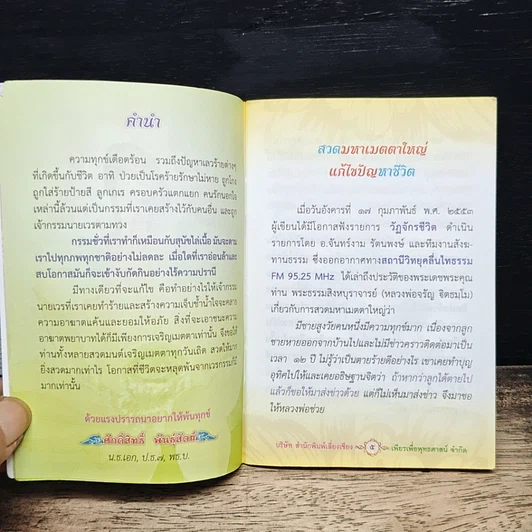 คำนำ
ความทุกข์เดือดร้อน รวมถึงปัญหาเลวร้ายต่างๆ
ที่เกิดขึ้นกับชีวิต อาทิ ป่วยเป็นโรคร้ายรักษาไม่หาย ถูกโกง
ถูกใส่ร้ายป้ายสี ลูกเกเร ครอบครัวแตกแยก คนรักนอกใจ
เหล่านี้ล้วนแต่เป็นกรรมที่เราเคยสร้างไว้กับคนอื่น และถูก
เจ้ากรรมนายเวรตามทวง
กรรมชั่วที่เราทำก็เหมือนกับสุนัขไล่เนื้อ มันจะตาม
เราไปทุกภพทุกชาติอย่างไม่ลดละ เมื่อใดที่เราอ่อนล้าและ
สบโอกาสมันก็จะเข้างับกัดกินอย่างไร้ความปรานี
มีทางเดียวที่จะแก้ไข คือทำอย่างไรให้เจ้ากรรม
นายเวรที่เราเคยทำร้ายและสร้างความเจ็บช้ำน้ำใจจะคลาย
ความอาฆาตแค้นและยอมให้อภัย สิ่งที่จะเอาชนะความ
อาฆาตพยาบาทได้ก็มีเพียงการเจริญเมตตาเท่านั้น จึงขอให้
ท่านทั้งหลายสวดมนต์เจริญเมตตาทุกวันเถิด สวดให้มาก
ยิ่งสวดมากเท่าไร โอกาสที่ชีวิตจะหลุดพ้นจากเวรกรรมก็มี
มากเท่านั้น
ด้วยแรงปรารถนาอยากให้พ้นทุกข์
ศักดิ์สิทธิ์ พันธุ์สัตย์
น.ธ.เอก, ป.ธ.๗, พธ.บ.
สวดมหาเมตตาใหญ่
แก้ไขปัญหาชีวิต
เมื่อวันอังคารที่ ๑๗ กุมภาพันธ์ พ.ศ. ๒๕๕๓
ผู้เขียนได้มีโอกาสฟังรายการ วัฏจักรชีวิต ดำเนิน
รายการโดย อ.จันทร์งาม รัตนพงษ์ และทีมงานสังฆ-
ทานธรรม ซึ่งออกอากาศทางสถานีวิทยุคลื่นไทธรรม
FM 95.25 MHz ได้เล่าถึงประวัติของพระเดชพระคุณ
ท่าน พระธรรมสิงหบุราจารย์ (หลวงพ่อจรัญ ฐิตธมฺโม)
เกี่ยวกับการสวดมหาเมตตาใหญ่ว่า
มีชายสูงวัยคนหนึ่งมีความทุกข์มาก เนื่องจากลูก
ชายหายออกจากบ้านไปและไม่มีข่าวคราวติดต่อมาเป็น
เวลา ๑๒ ปี ไม่รู้ว่าเป็นตายร้ายดีอย่างไร เขาเคยทำบุญ
อุทิศไปให้และเคยอธิษฐานจิตว่า ถ้าหากว่าลูกได้ตายไป
แล้วก็ขอให้มาส่งข่าวด้วย แต่ก็ไม่เห็นมาส่งข่าว จึงมาขอ
ให้หลวงพ่อช่วย
บริษัท สำนักพิมพ์เลี่ยงเชียง ๕ เพียรเพื่อพุทธศาสน์ จำกัด